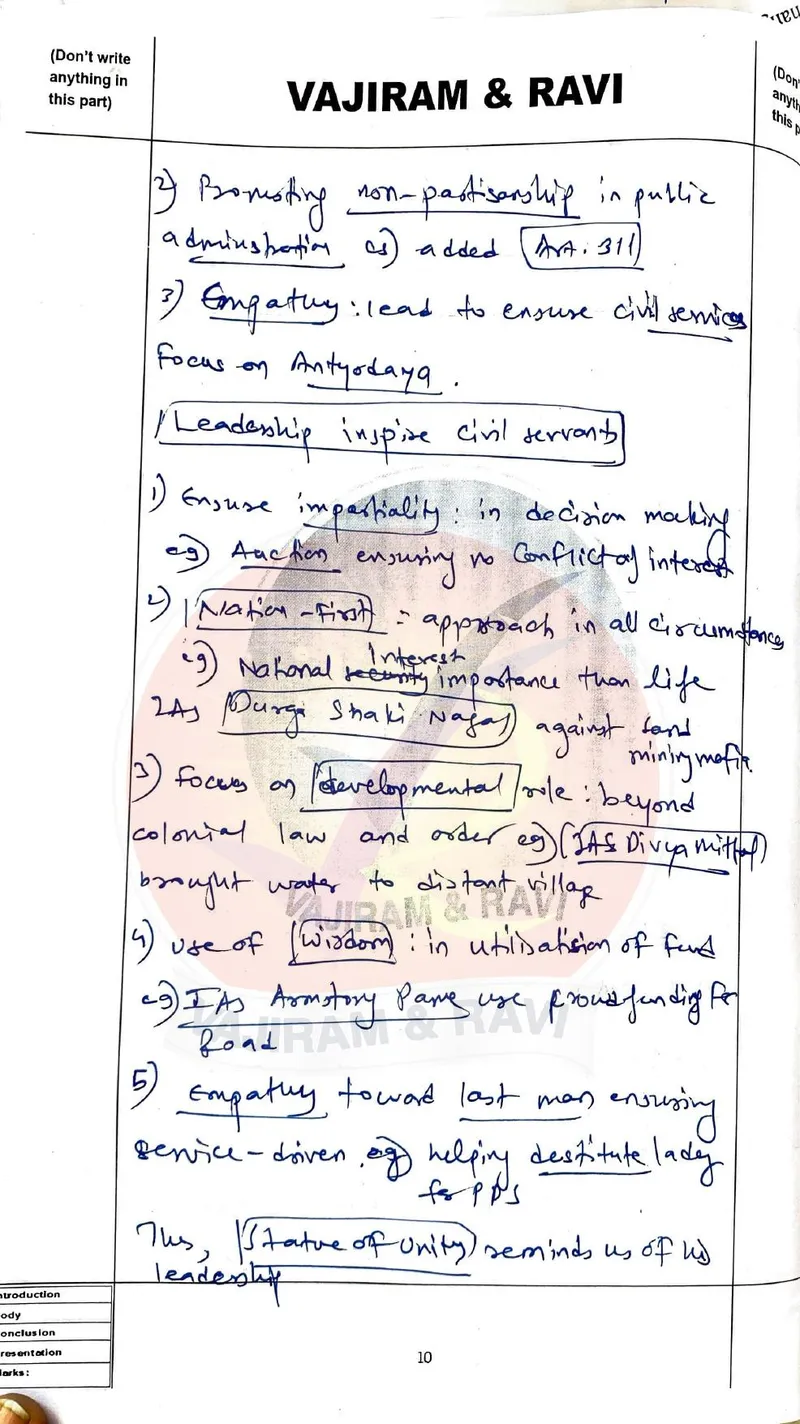 (Don't write
anything in
this part)
VAJIRAM & RAVI
(Don'
anyth
this p
2) Promoting non-partisanship in public
administration eg) added Art. 311
3) Empathy : lead to ensure civil services
Focus on Antyodaya.
Leadership inspire civil servants
1) Ensure impartiality : in decision making
eg) Auction ensuring no Conflict of interest
2) Nation-First := approach in all circumstances
eg) National security Interest importance than life
IAS Durga Shakti Nagar against sand
mining mafia
3) Focus on developmental role : beyond
colonial law and order eg) (IAS Divya Mittal)
brought water to distant village
VAJIRAM & RAVI
4) Use of Wisdom : in utilisation of fund
eg) IAS Armstrong Pame use for
Road
VAJIRAM & RAVI
5) Empathy toward last man ensuring
service-driven. eg) helping destitute lady
for PDS
Thus, Statue of Unity reminds us of his
leadership
ntroduction
ody
onclusion
resentation
larks:
10